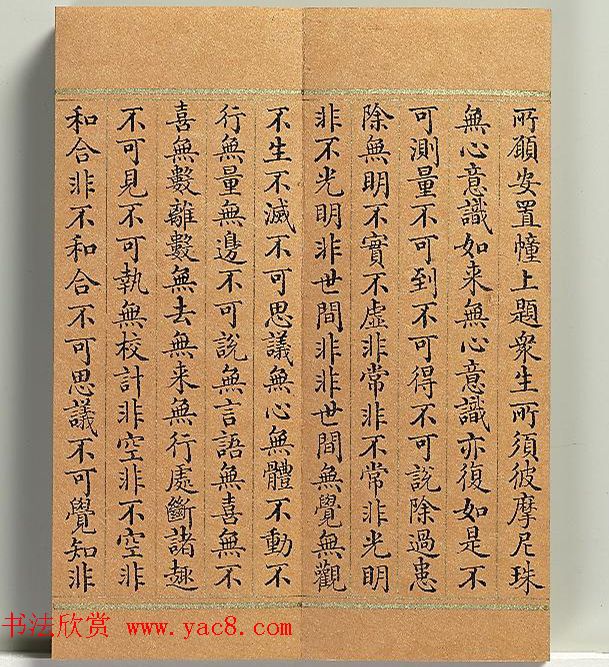 所願安置幢上題衆生所須彼摩尼珠
無心意識如来無心意識亦復如是不
可測量不可到不可得不可説除過患
除無明不實不虛非常非不常非光明
非不光明非世間非非世間無覺無觀
不生不滅不可思議無心無體不動不
行無量無邊不可說無言語無喜無不
喜無數離數無去無来無行處斷諸趣
不可見不可執無校計非空非不空非
和合非不和合不可思議不可覺知非
书法欣赏 www.yac8.com